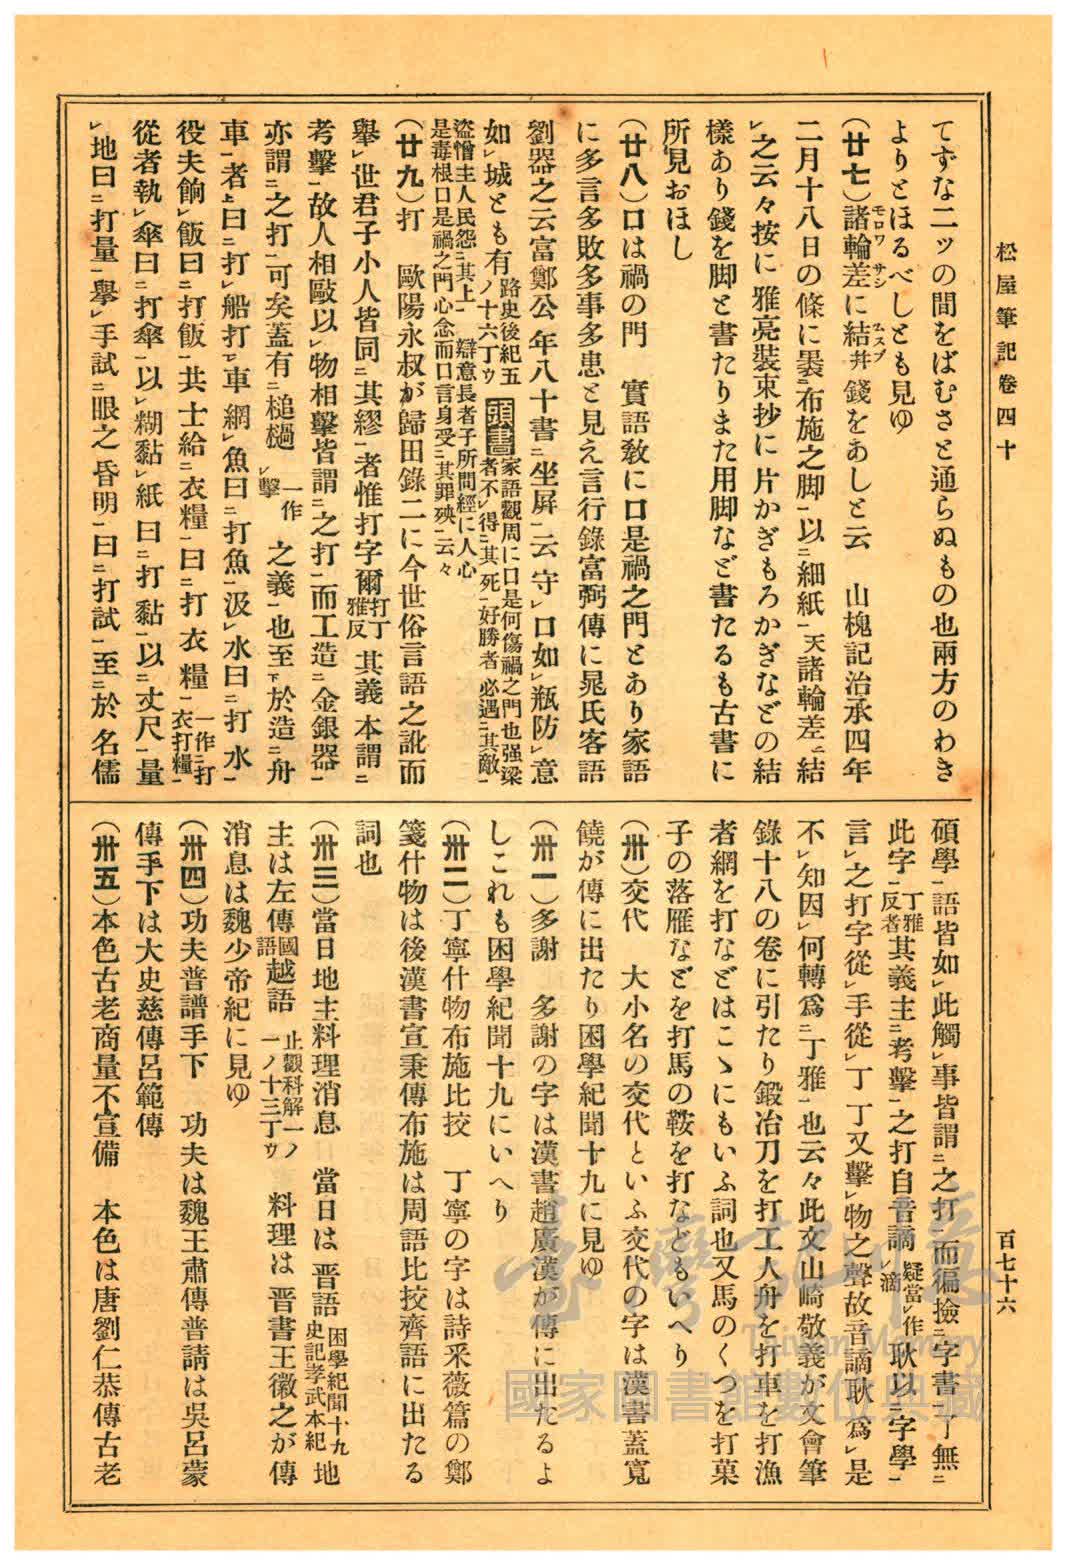 松屋筆記卷四十
百七十六
てずな二ツの間をばむさと通らぬもの也兩方のわき
よりとほるべしとも見ゆ
(廿七)諸輪差に結幷錢をあしと云　山槐記治承四年
モロワ サシ ムスブ
二月十八日の條に褁ニ布施之脚一以ニ細紙一天諸輪差ニ結
レ之云々按に雅亮裝束抄に片かぎもろかぎなどの結
樣あり錢を脚と書たりまた用脚など書たるも古書に
所見おほし
(廿八)口は禍の門　實語敎に口是禍之門とあり家語
に多言多敗多事多患と見え言行錄富弼傳に晁氏客語
劉器之云富鄭公年八十書ニ坐屛一云守レ口如レ瓶防レ意
如レ城とも有路史後紀五ノ十六丁ウ頭書家語觀周に口是何傷禍之門也强梁者不レ得ニ其死一好勝者必遇ニ其敵一
盜憎主人民怨ニ其上一　辯意長者子所間經に人心
是毒根口是禍之門心念而口言身受ニ其罪殃一云々
(廿九)打　歐陽永叔が歸田錄二に今世俗言語之訛而
擧レ世君子小人皆同ニ其繆一者惟打字爾打丁雅反其義本謂ニ
考擊一故人相毆以レ物相擊皆謂ニ之打一而工造ニ金銀器一
亦謂ニ之打一可矣蓋有ニ槌檛一作レ擊之義一也至下於造ニ舟
車一者上曰ニ打レ船打レ車網レ魚曰ニ打魚一汲レ水曰ニ打水一
役夫餉レ飯曰ニ打飯一共士給ニ衣糧一曰ニ打衣糧一一作ニ打衣打糧一
從者執レ傘曰ニ打傘一以レ糊黏レ紙曰ニ打黏一以ニ丈尺一量
レ地曰ニ打量一擧レ手試ニ眼之昏明一曰ニ打試一至ニ於名儒
碩學一語皆如レ此觸レ事皆謂ニ之打一而徧撿ニ字書一了無ニ
此字一丁雅反者其義主ニ考擊一之打自音謫疑當レ作レ滴耿以ニ字學一
言レ之打字從レ手從レ丁丁又擊レ物之聲故音謫耿爲レ是
不レ知因レ何轉爲ニ丁雅一也云々此文山崎敬義が文會筆
錄十八の卷に引たり鍛冶刀を打工人舟を打車を打漁
者網を打などはこゝにもいふ詞也又馬のくつを打菓
子の落雁などを打馬の鞍を打などもいへり
(卅)交代　大小名の交代といふ交代の字は漢書蓋寬
饒が傳に出たり困學紀聞十九に見ゆ
(卅一)多謝　多謝の字は漢書趙廣漢が傳に出たるよ
しこれも困學紀聞十九にいへり
(卅二)丁寧什物布施比挍　丁寧の字は詩釆薇篇の鄭
箋什物は後漢書宣秉傳布施は周語比挍齊語に出たる
詞也
(卅三)當日地主料理消息　當日は晋語困學紀聞十九史記孝武本紀地
主は左傳國語越語止觀科解一ノ一ノ十三丁ウ料理は晋書王徽之が傳
消息は魏少帝紀に見ゆ
(卅四)功夫普譜手下　功夫は魏王肅傳普請は吳呂蒙
傳手下は大史慈傳呂範傳
(卅五)本色古老商量不宣備　本色は唐劉仁恭傳古老
臺灣記憶
Taiwan Memory
國家圖書館數位典藏